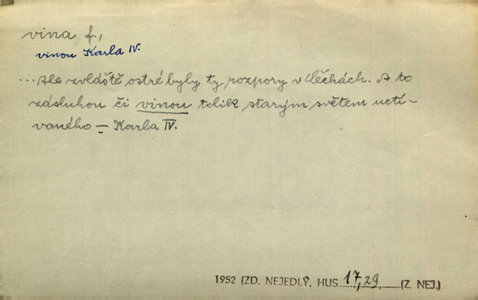 vina f.,
vinou Karla IV.
...Ale zvláště ostré byly ty rozpory v Čechách. A to
zásluhou či vinou tolik starým světem uctí-
vaného – Karla IV.
1952 (ZD. NEJEDLÝ, HUS 17, 29, (Z. NEJ.)